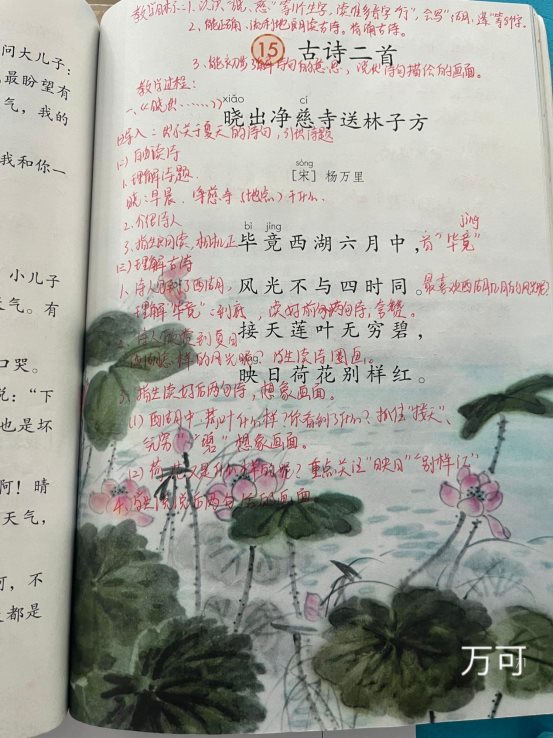 问大儿子:
最盼望有
气，我的
我和你一
小儿子
天气。有
口哭。
说：“下
也是坏
啊！晴
天气，
可，不
都是
教学目标:1、认识“慈”等生字，读准多音字“行”，会写“湖、莲”等字。
2、能正确、流利地朗读古诗。背诵古诗。
15 古诗二首
3、能初步了解诗句的意思，说出诗句描绘的画面。
教学过程:
xiāo cí
晓出净慈寺送林子方
导入：关于夏天的诗句，引出诗题
自由读诗
1.理解诗题.
sòng
[宋] 杨万里
晓:早晨 净慈寺(地点)干什么.
2.介绍诗人
bì jìng
毕竟西湖六月中，
jìng
“毕竟”
理解古诗
1、诗人 西湖，
风光不与四时同。
理解“毕竟”:到底，读好前两句诗，
接天莲叶无穷碧，
怎样的风光呢? 生读诗圈画。
映日荷花别样红。
指生读好后两句诗，想象画面。
(1)西湖中 叶什么样?你看到了什么?抓住“接天”、
无穷“碧”想象画面。
(2)荷花又是什么样的呢? 重点关注“映日”“别样红”
说说后两句 画面
万可